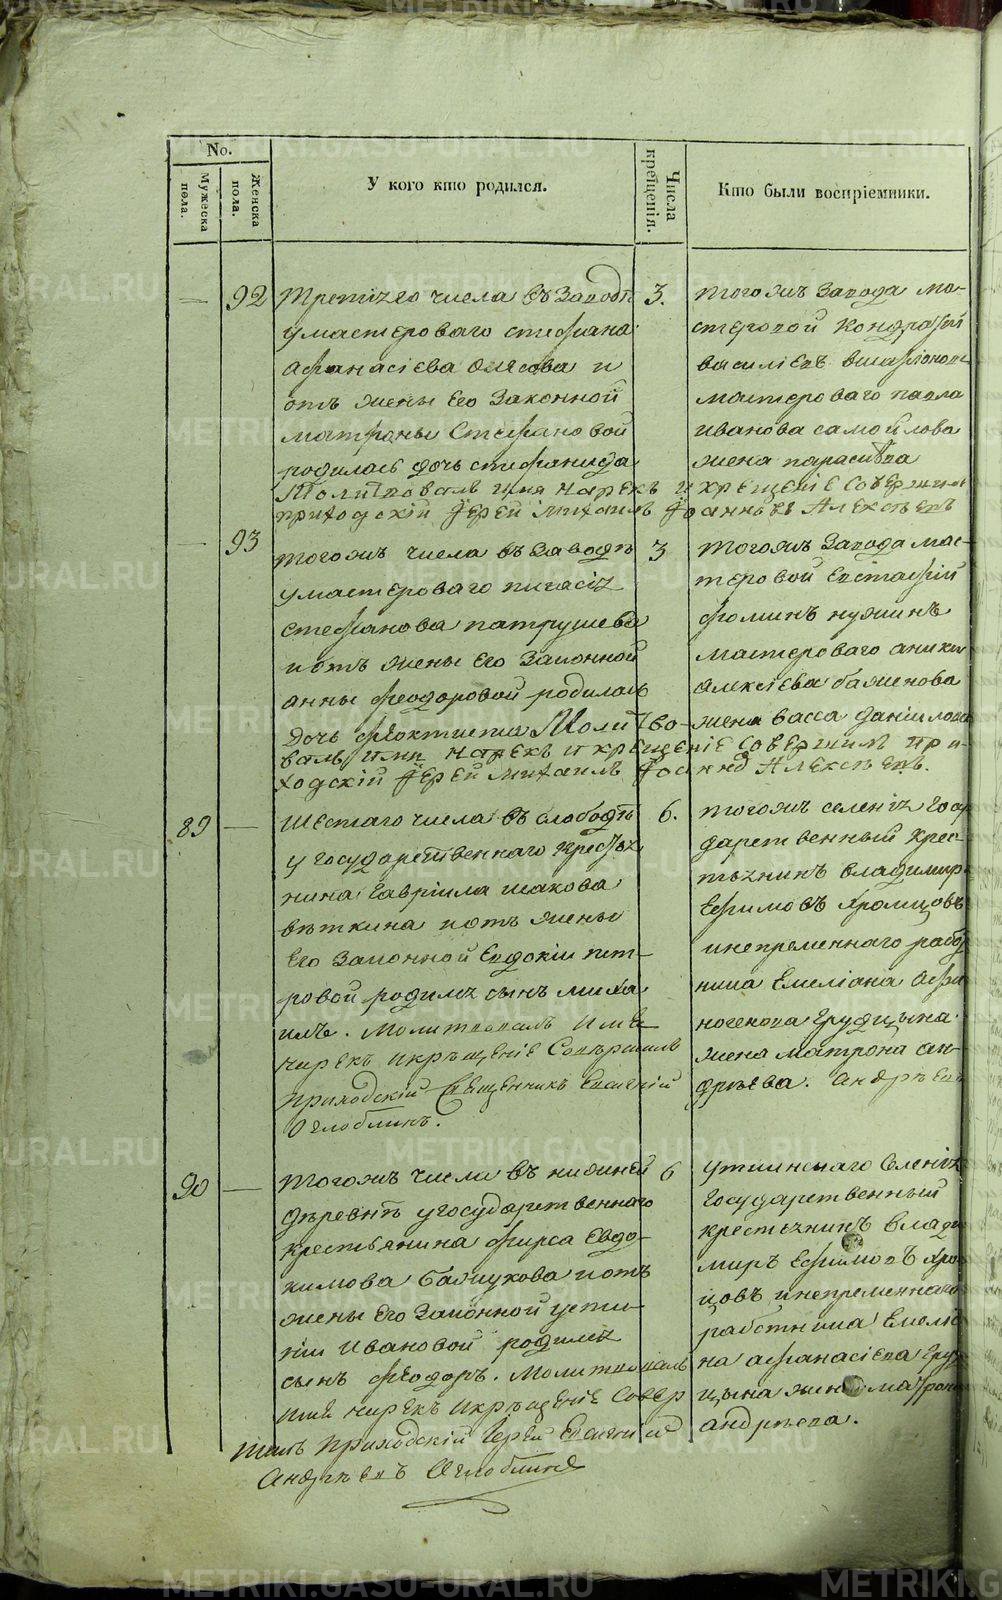 No.
Мужеска пола.
Женска пола.
У кого кто родился.
Числа крещенія.
Кто были воспріемники.
92
Третіяго числа въ Заводѣ
у мастероваго стефана
афанасіева
и
отъ жены Его Законной
матроны Стефановой
родилась дочь стефанида
Молитвовалъ имя нарекъ и крещеніе Совершилъ
приходскій Іерей Михаилъ Іоанновъ Алексѣевъ
3.
тогожъ Завода ма-
стеровой кондратій
василіевъ
мастероваго павла
иванова самойлова
жена парасковва
93
тогожъ числа въ Заводѣ
у мастероваго
стефанова патрушева
и отъ жены Его Законной
анны феодоровой родилась
дочь феоктиста Молитво-
валъ имя нарекъ и крещеніе Совершилъ при-
ходскій Іерей Михаилъ Іоаннъ Алексѣевъ.
3
тогожъ Завода мас-
теровой Евстафій
фоминъ нужинъ
мастероваго аники
алексіева баженова
жена васса даніилова
89
Шестаго числа въ слободѣ
у государственнаго крестья
нина Гавріила исакова
вяткина и отъ жены
Его Законной Евдокіи пет-
ровой родился сынъ миха
илъ. Молитвовалъ Имя
нарекъ и крещеніе Совершилъ
приходскій Священникъ Евгеній
Оглоблинъ.
6.
тогожъ селенія госу
дарственный крес-
тьянинъ владимиръ
Ефимовъ Хромцовъ
и непременнаго работ
ника Емеліана Афи
ногенова Грудцына
жена матрона ан-
дреева. Андрѣева
90
Тогожъ числа въ нижней
деревнѣ у государственнаго
крестьянина фирса Евдо-
кимова и отъ
жены Его Законной усти-
ніи Ивановой родился
сынъ феодоръ. Молитвовалъ
имя нарекъ и крещеніе Совер
шилъ приходскій Іерей Евгеній
Андрѣевъ Оглоблинъ
6
Уткинскаго Селенія
Государственный
крестьянинъ Влади
миръ Ефимовъ Хром
цовъ и непременнаго
работника Емелія
на афанасіева Груд
цына жена матрона
андреева.
METRIKI.GASO-URAL.RU